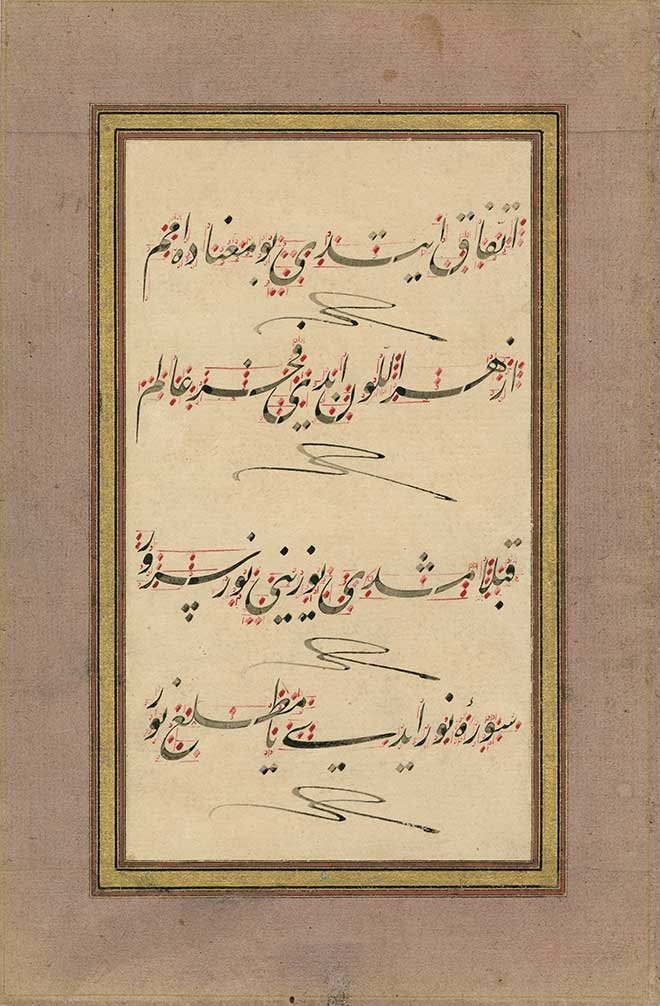 اتفاق ایتدی بو معناده امم
ازهر اللون ایدی فخر عالم
قبلامشدی یوزینی نور سرور
سورهٔ نور ایدی یا مطلع نور